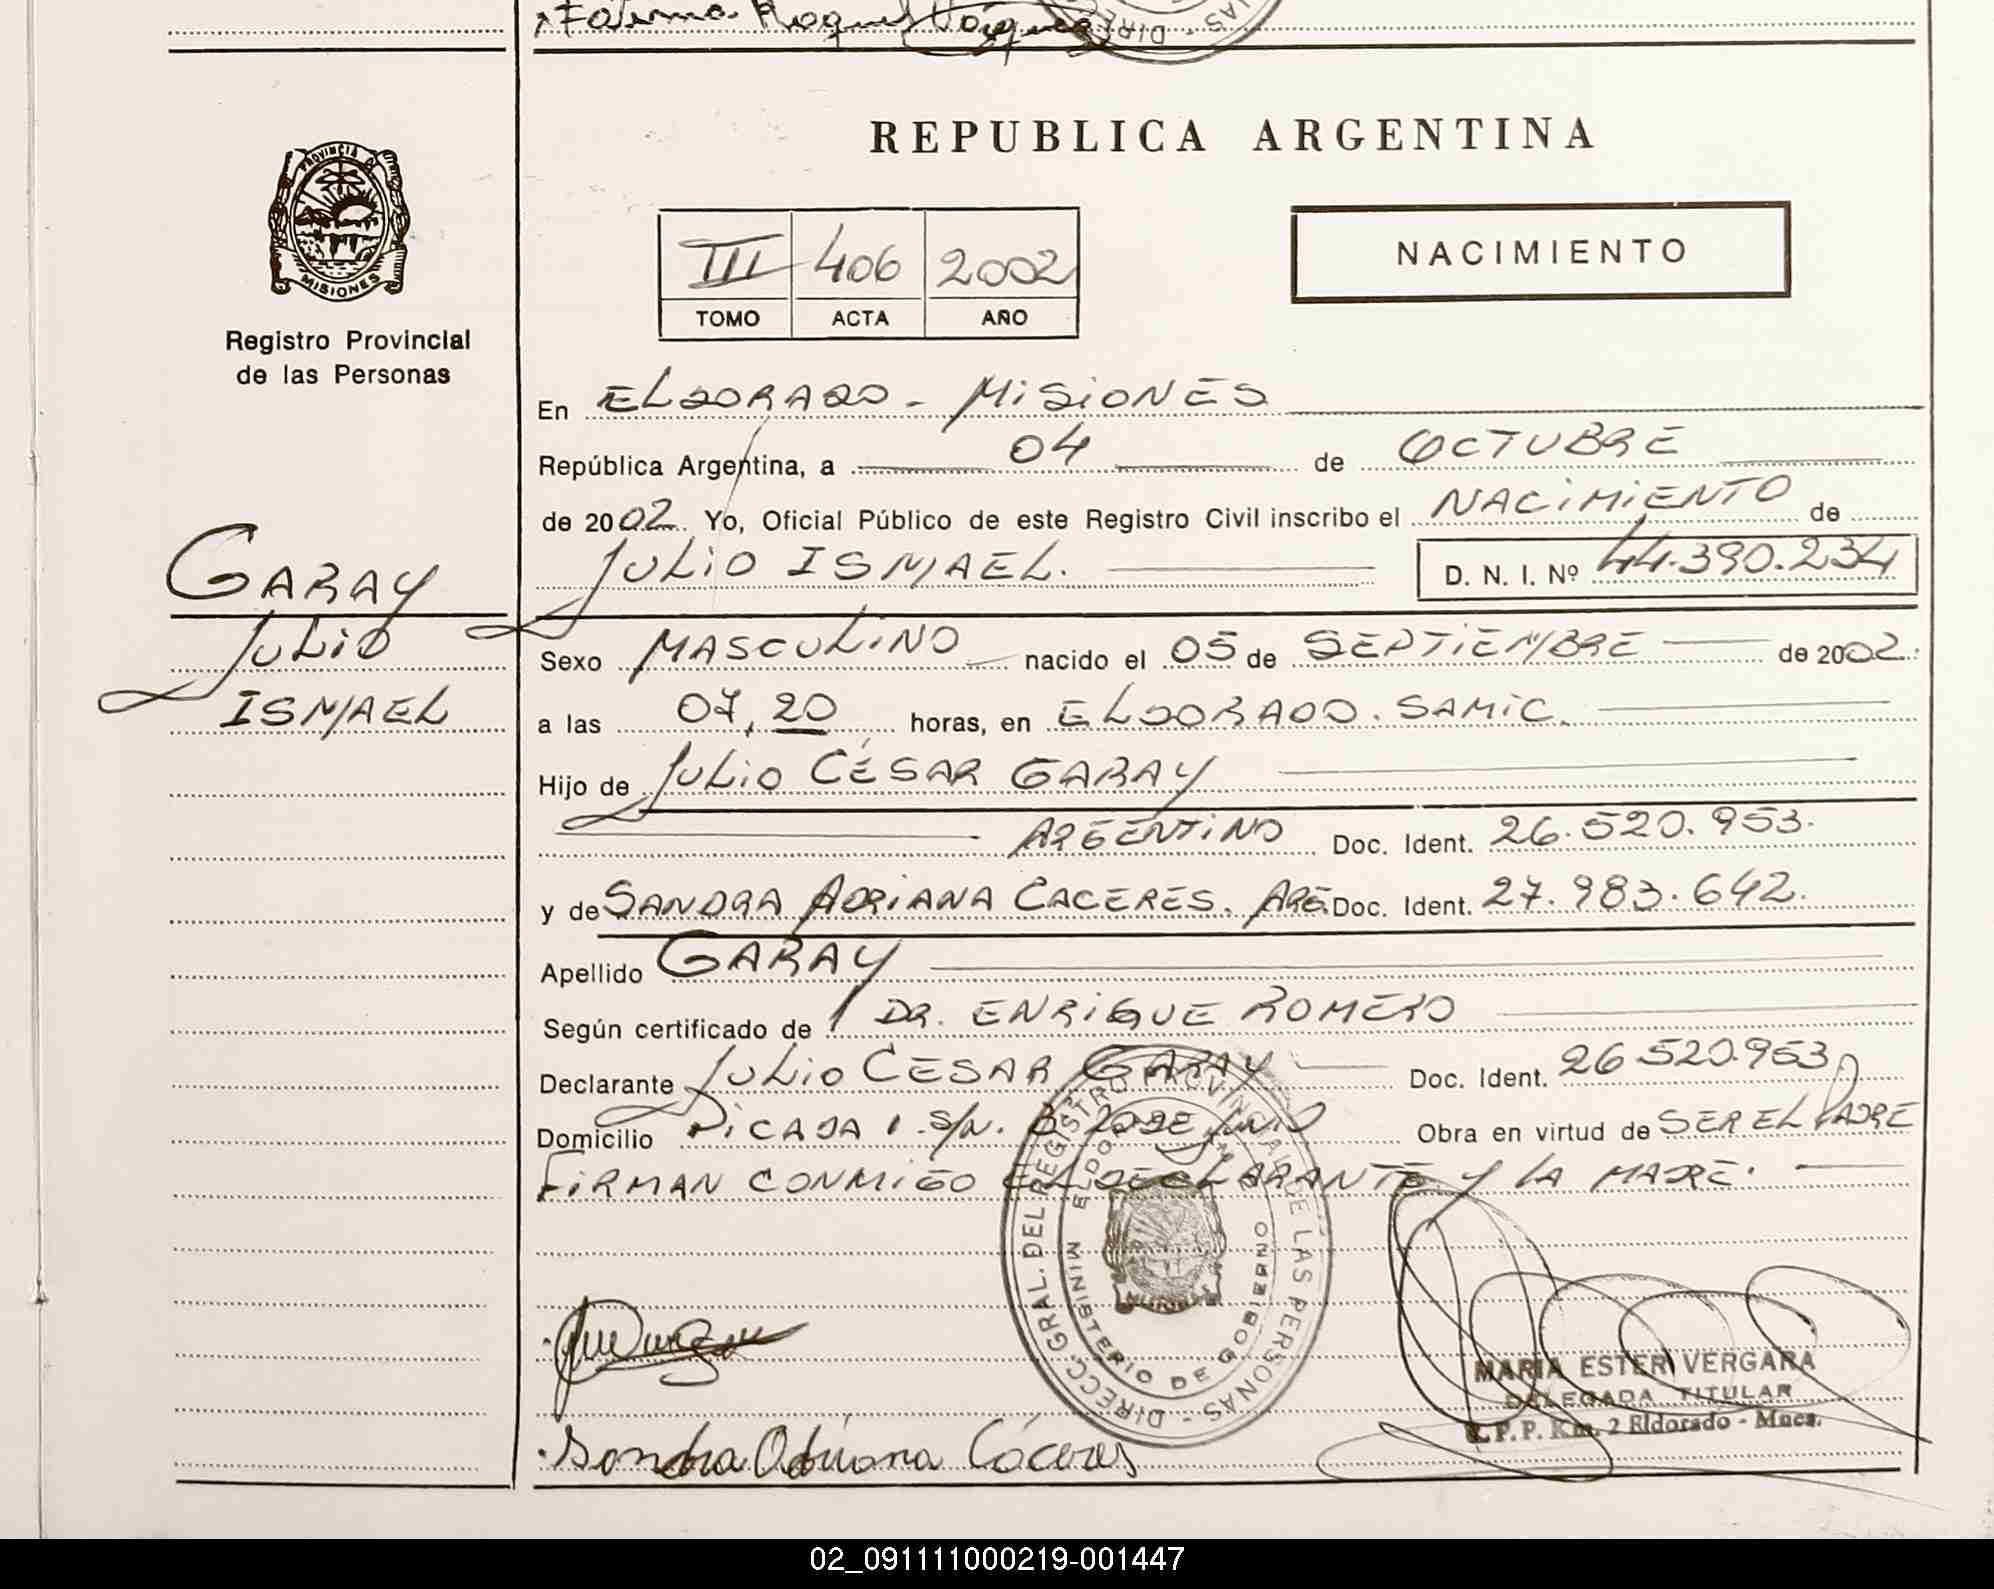 REPUBLICA ARGENTINA
PROVINCIA DE MISIONES
Registro Provincial
de las Personas
III 406 2002
TOMO ACTA AÑO
NACIMIENTO
En ELDORADO - MISIONES
República Argentina, a 04 de OCTUBRE
de 2002 Yo, Oficial Público de este Registro Civil inscribo el NACIMIENTO de
JULIO ISMAEL. D. N. I. Nº 44.390.234
GARAY
JULIO
ISMAEL
Sexo MASCULINO nacido el 05 de SEPTIEMBRE de 2002.
a las 07,20 horas, en ELDORADO. SAMIC.
Hijo de JULIO CÉSAR GARAY
ARGENTINO Doc. Ident. 26.520.953.
y de SANDRA ADRIANA CACERES. ARG. Doc. Ident. 27.983.642.
Apellido GARAY
Según certificado de DR. ENRIQUE ROMERO
Declarante JULIO CESAR GARAY Doc. Ident. 26.520.953
Domicilio PICADA 1. S/N. B 20 DE JUNIO Obra en virtud de SER EL PADRE
FIRMAN CONMIGO EL DECLARANTE Y LA MADRE.
DIRECC. GRAL. DEL REGISTRO PROVINCIAL DE LAS PERSONAS
MINISTERIO DE GOBIERNO
MARIA ESTER VERGARA
DELEGADA TITULAR
R. P. P. Km. 2 Eldorado - Mnes.
Sandra Adriana Cáceres
02_091111000219-001447